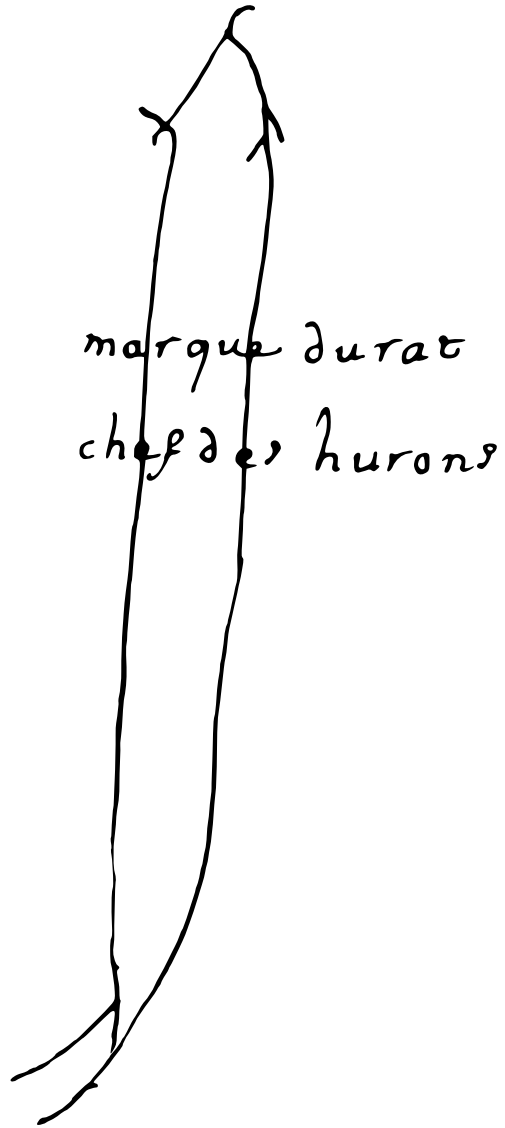 marque durat
chef des hurons